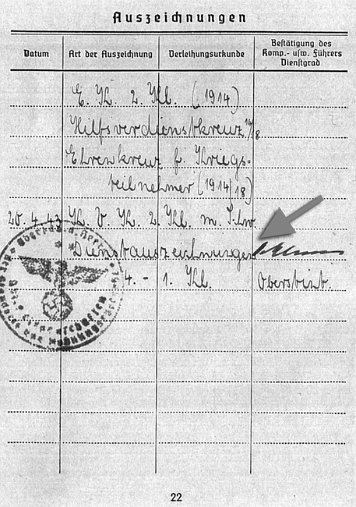 Auszeichnungen
Datum Art der Auszeichnung Verleihungsurkunde Bestätigung des Komp.- usw. Führers Dienstgrad
E. K. 2. Kl. (1914)
Hilfsverdienstkreuz 17/18
Ehrenkreuz f. Kriegs-
teilnehmer (1914/18)
20. 4. 43 K. V. K. 2. Kl. m. Schw
Dienstauszeichnungen
4. - 1. Kl. Oberstlt.
22